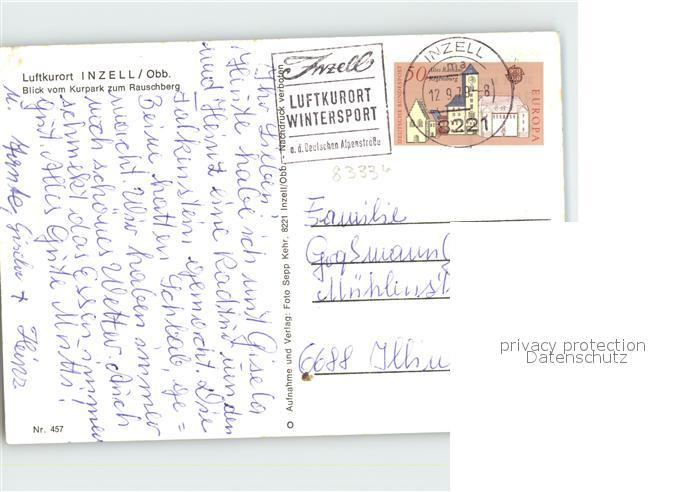 Luftkurort INZELL/Obb.
Blick vom Kurpark zum Rauschberg
Ihr Lieben!
Heute habe ich mit Gisela
und Heinz eine Radtour um den
Falkenstein gemacht. Die
Beine hatten
macht. Wir haben immer
noch schönes Wetter. Auch
schmekt das Essen immer
gut. Alles Gute Mutti!
Gisela + Heinz
Nr. 457
Aufnahme und Verlag: Foto Sepp Kehr, 8221 Inzell/Obb. - Nachdruck verboten
Inzell
LUFTKURORT
WINTERSPORT
a.d. Deutschen Alpenstraße
INZELL
12.9.78-8
8221
50
DEUTSCHE BUNDESPOST
EUROPA
83334
Familie
Mühlenst
6688 Illin
privacy protection
Datenschutz